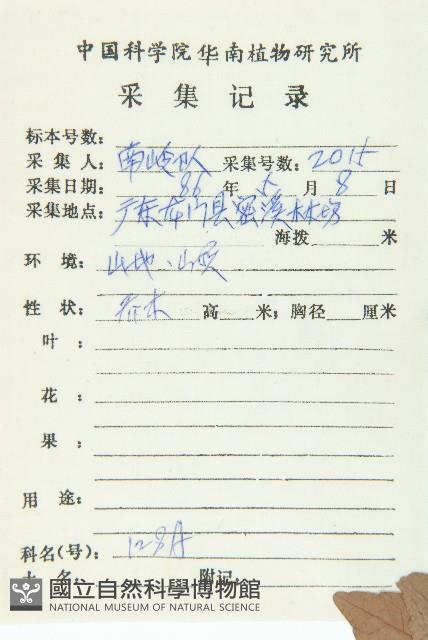 中国科学院华南植物研究所
采集记录
标本号数：
采集人：南岭队 采集号数：2015
采集日期：86年5月8日
采集地点：广东龙门县密溪林场
海拨 米
环境：山地、山
性状：乔木 高 米；胸径 厘米
叶：
花：
果：
用途：
科名(号)：128A
附记
國立自然科學博物館
NATIONAL MUSEUM OF NATURAL SCIENCE